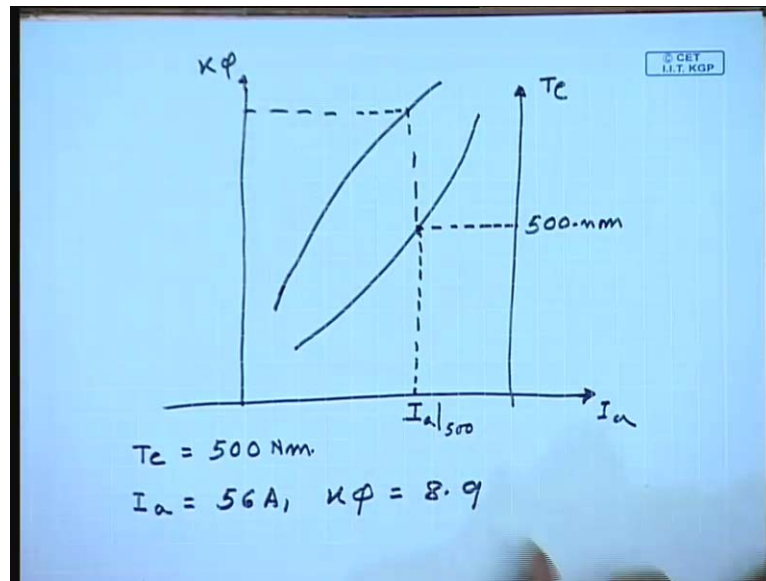 Kφ
© CET
I.I.T. KGP
Te
500-nm
Ia|500
Ia
Te = 500 Nm.
Ia = 56 A, Kφ = 8.9